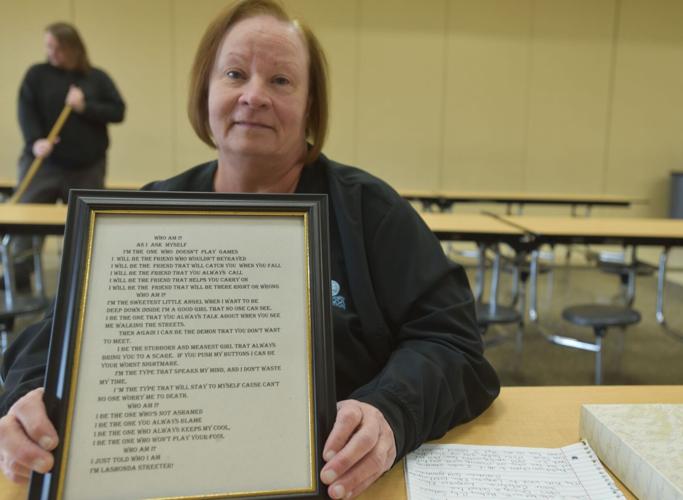 WHO AM I?
AS I ASK MYSELF
I'M THE ONE WHO DOESN'T PLAY GAMES
I WILL BE THE FRIEND WHO WOULDN'T BETRAYED
I WILL BE THE FRIEND THAT WILL CATCH YOU WHEN YOU FALL
I WILL BE THE FRIEND THAT YOU ALWAYS CALL
I WILL BE THE FRIEND THAT HELPS YOU CARRY ON
I WILL BE THE FRIEND THAT WILL BE THERE RIGHT OR WRONG
WHO AM I?
I'M THE SWEETEST LITTLE ANGEL WHEN I WANT TO BE
DEEP DOWN INSIDE I'M A GOOD GIRL THAT NO ONE CAN SEE.
I BE THE ONE THAT YOU ALWAYS TALK ABOUT WHEN YOU SEE
ME WALKING THE STREETS.
THEN AGAIN I CAN BE THE DEMON THAT YOU DON'T WANT
TO MEET.
I BE THE STUBBORN AND MEANEST GIRL THAT ALWAYS
BRING YOU TO A SCARE. IF YOU PUSH MY BUTTONS I CAN BE
YOUR WORST NIGHTMARE.
I'M THE TYPE THAT SPEAKS MY MIND, AND I DON'T WASTE
MY TIME.
I'M THE TYPE THAT WILL STAY TO MYSELF CAUSE CAN'T
NO ONE WORRY ME TO DEATH.
WHO AM I?
I BE THE ONE WHO'S NOT ASHAMED
I BE THE ONE YOU ALWAYS BLAME
I BE THE ONE WHO ALWAYS KEEPS MY COOL,
I BE THE ONE WHO WON'T PLAY YOUR FOOL
WHO AM I?
I JUST TOLD WHO I AM
I'M LASHONDA STREETER!